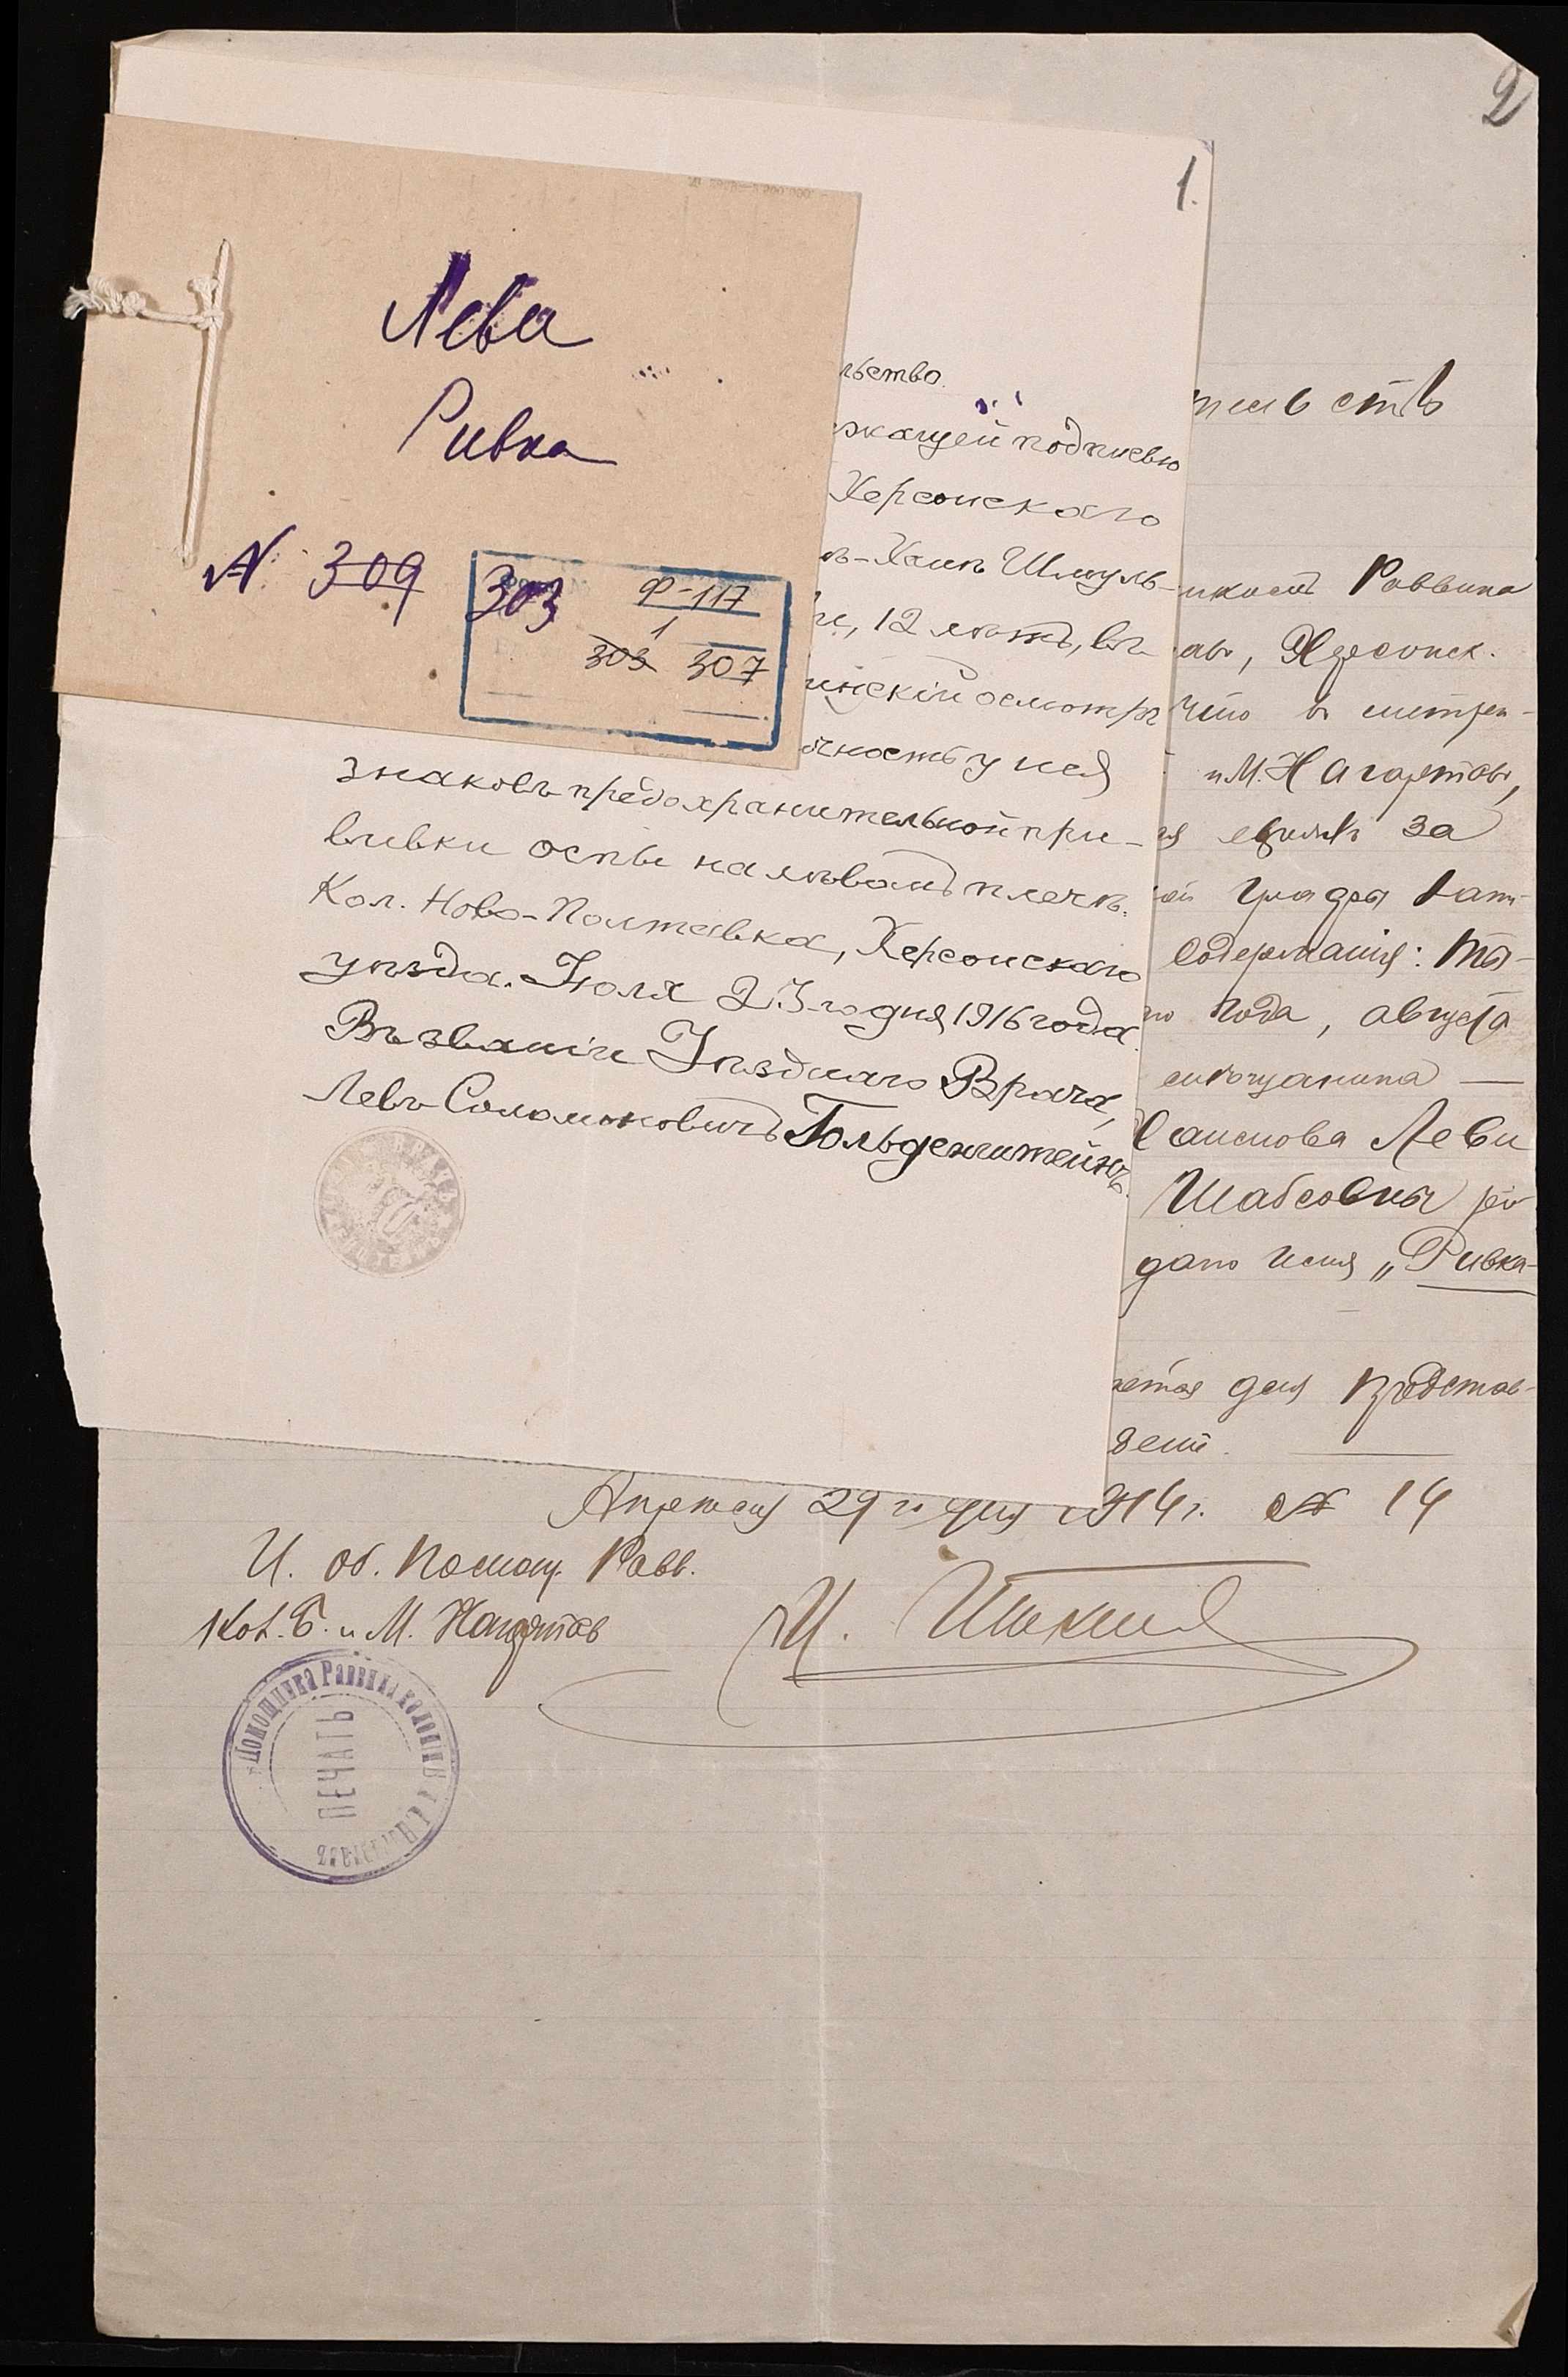 2
1.
Лева
Ривка
№ 309
303 Ф-117
1
303 307
льство.
жащей подписью
Херсонскаго
ъ-Хаимъ Шмуль-
12 лѣтъ, въ
инскій осмотръ
чность у нея
знаковъ предохранительной при-
вивки оспы на лѣвомъ плечѣ.
Кол. Ново-Полтавка, Херсонскаго
уѣзда. Іюля 23-го дня 1916 года.
Въ званіи Уѣзднаго Врача,
Левъ Соломоновичъ Гольденштейнъ.
Раввина
Херсонск.
что въ метрич-
и М. Нагартавъ,
за
графы
содержанія:
года, августа
мѣщанина —
Хаимова Леви
Шабсовны ро-
дано имя „Ривка-
для представ-
Апрѣля 29 го дня 1914 г. № 14
И. об. Помощ. Равв.
Кол. Б. и М. Нагартав
И. Иткин
Помощника Раввина колоніи
ПЕЧАТЬ